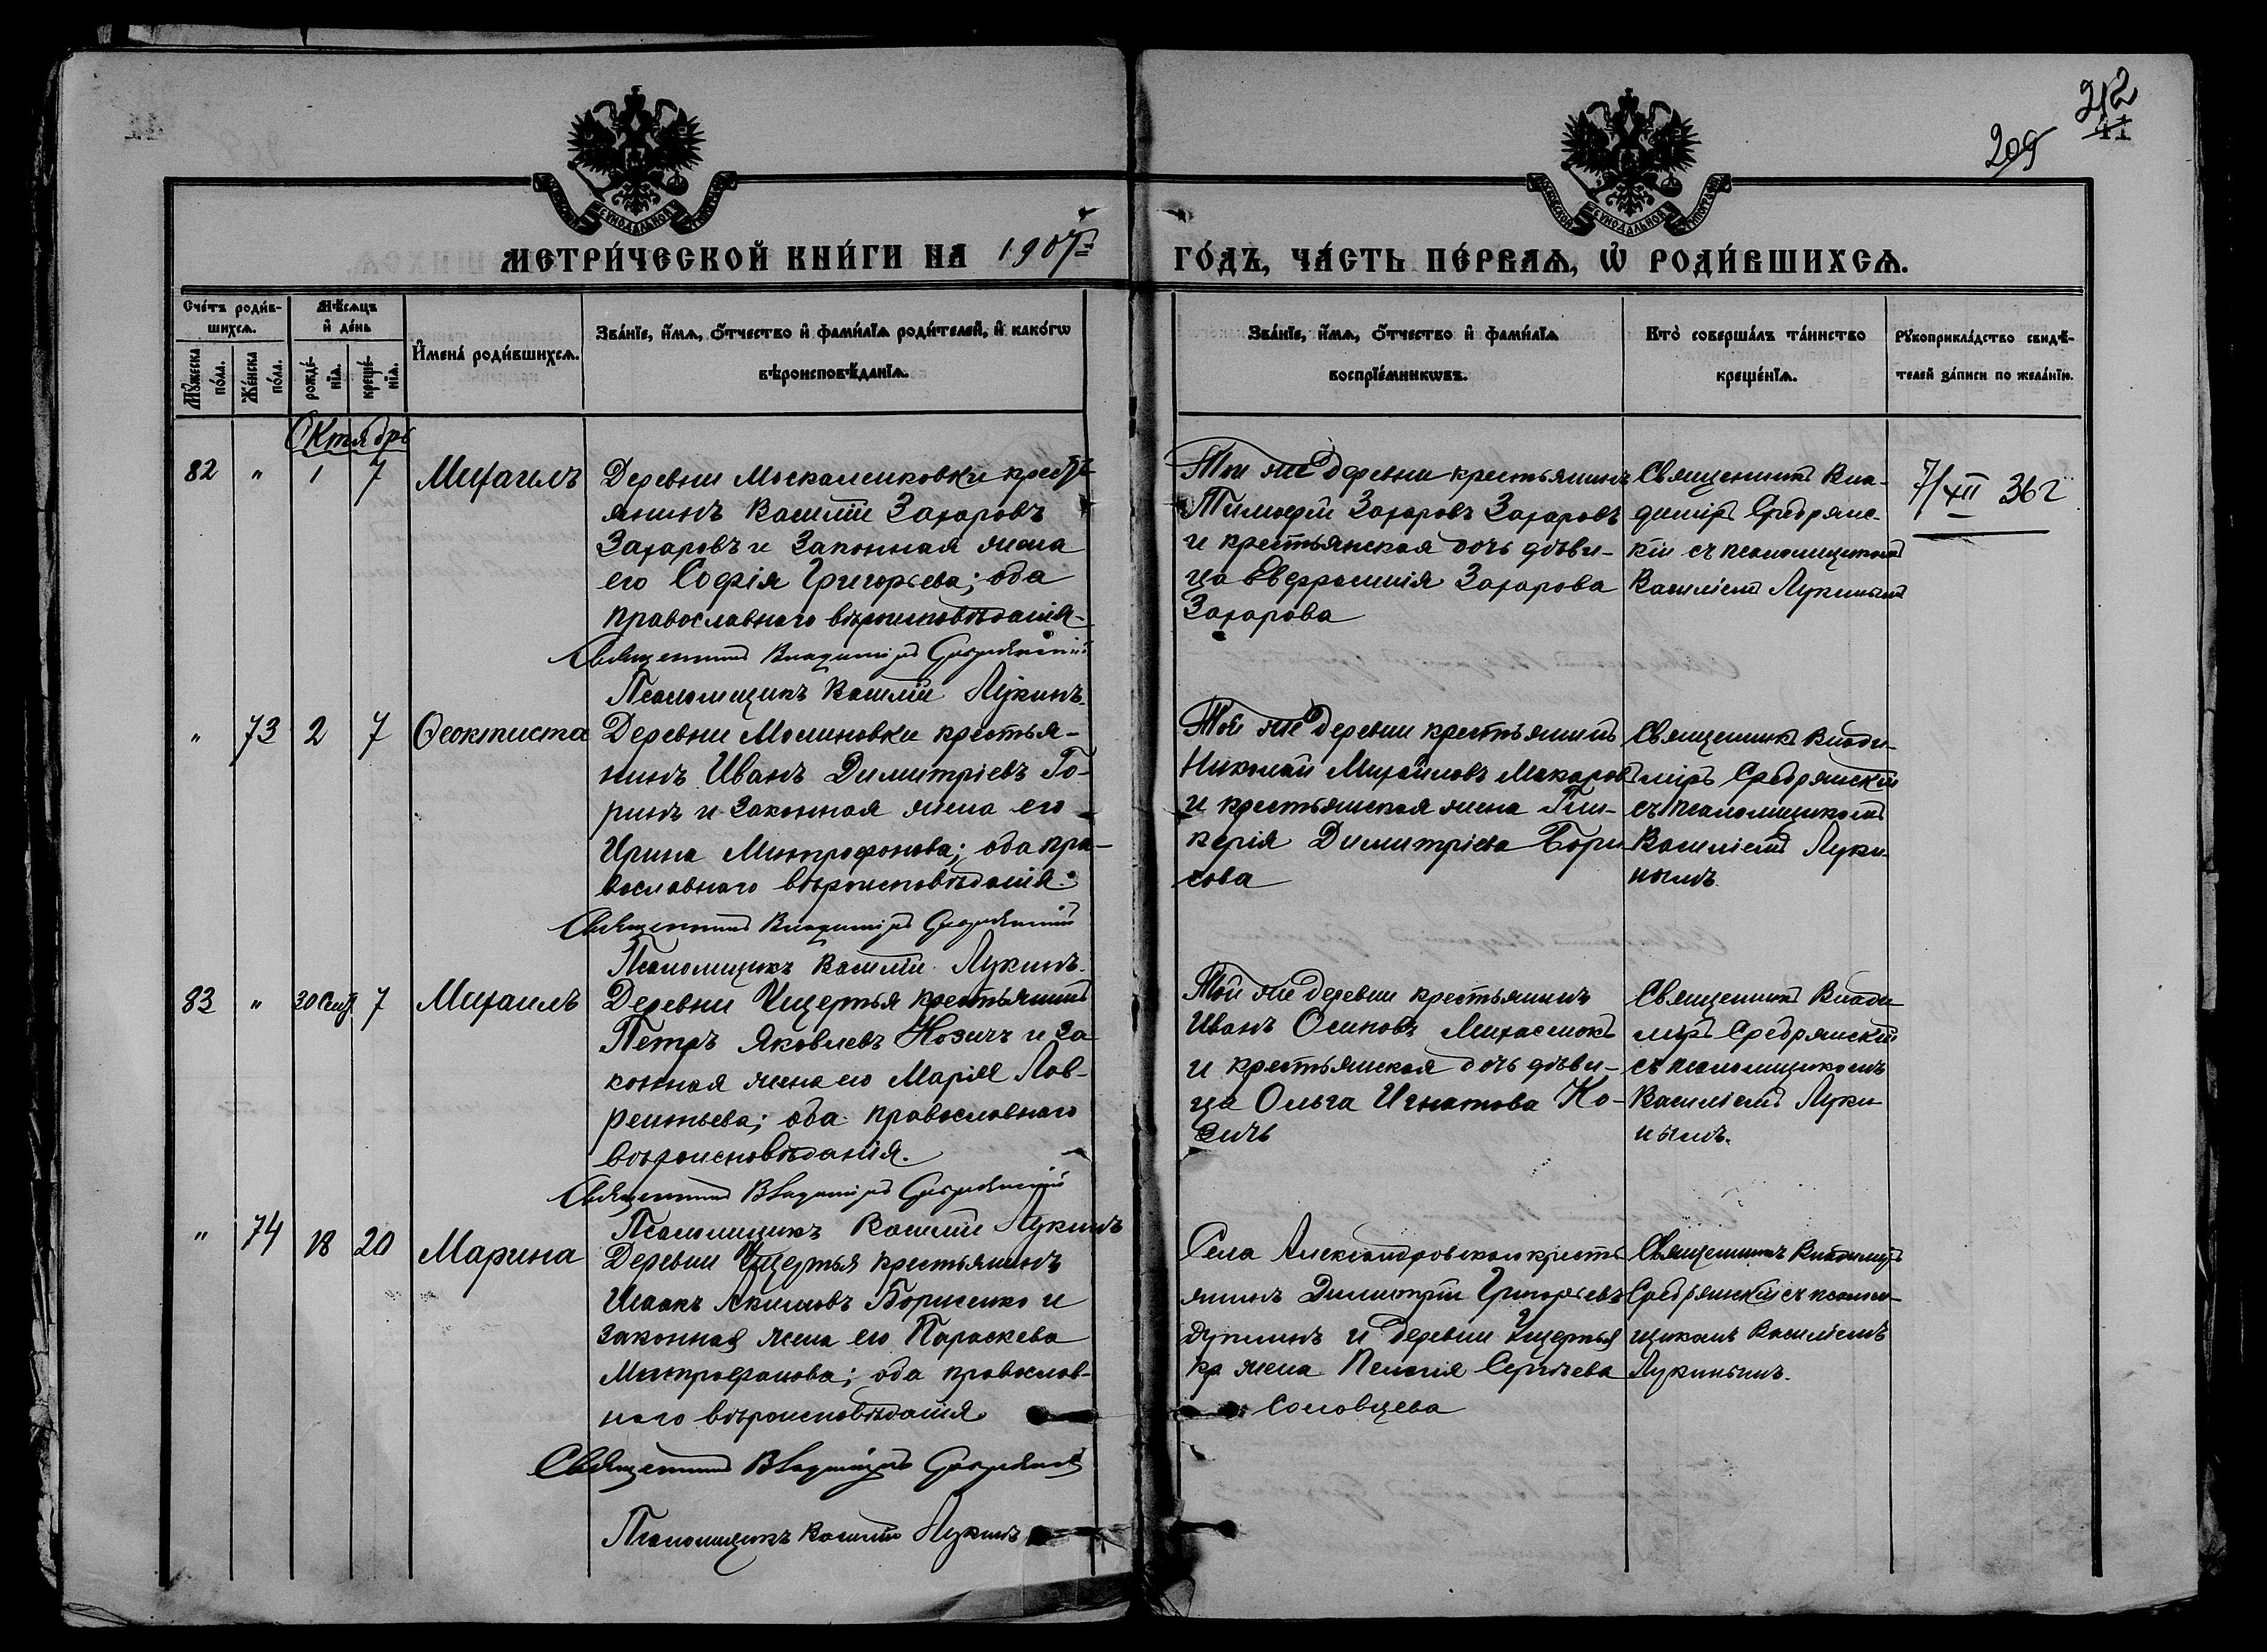 212
209
41
МОСКОВСКОЙ СѴНОДАЛЬНОЙ ТИПОГРАФІИ
МОСКОВСКОЙ СѴНОДАЛЬНОЙ ТИПОГРАФІИ
МЕТРИ́ЧЕСКОЙ КНИ́ГИ НА 1907й ГО́ДЪ, ЧА́СТЬ ПЕ́РВАѦ, Ѡ҆ РОДИ́ВШИХСѦ.
Сче́тъ роди́в-
шихсѧ.
Мꙋ́жеска по́ла.
Же́нска по́ла.
Мѣ́сѧцъ
и҆ де́нь
рожде́-
нїѧ.
креще́-
нїѧ.
И҆мена̀ роди́вшихсѧ.
Зва́нїе, и҆́мѧ, ѻ҆́тчество и҆ фами́лїѧ роди́телей, и҆ како́гѡ
вѣроисповѣ́данїѧ.
Зва́нїе, и҆́мѧ, ѻ҆́тчество и҆ фами́лїѧ
воспрїе́мникѡвъ.
Кто̀ соверша́лъ та́инство
креще́нїѧ.
Рꙋкоприкла́дство свидѣ́-
телей за́писи по жела́нїю.
Октябрь
82 " 1 7 Михаилъ
Деревни Москаленковки кресть-
янинъ Василій Захаровъ
Захаровъ и законная жена
его Софія Григорьева; оба
православнаго вѣроисповѣданія.
Священникъ Владиміръ Сребрянскій
Псаломщикъ Василій Лукинъ.
Той же деревни крестьянинъ
Тимофей Захаровъ Захаровъ
и крестьянская дочь дѣви-
ца Евфросинія Захарова
Захарова
Священникъ Вла-
диміръ Сребрянс-
кій съ псаломщикомъ
Василіемъ Лукинымъ
7/XII 36 г
" 73 2 7 Ѳеоктиста
Деревни Молиновки крестья-
нинъ Иванъ Димитріевъ Го-
ринъ и законная жена его
Ирина Митрофонова; оба пра-
вославнаго вѣроисповѣданія.
Священникъ Владиміръ Сребрянскій
Псаломщикъ Василій Лукинъ.
Той же деревни крестьянинъ
Николай Михайловъ Макаровъ
и крестьянская жена Гли-
керія Димитріева Бори-
сова
Священникъ Влади-
міръ Сребрянскій
съ псаломщикомъ
Василіемъ Луки-
нымъ.
83 " 30 Сент. 7 Михаилъ
Деревни Ущертья крестьянинъ
Петръ Яковлевъ Нозичъ и за-
конная жена его Марія Лав-
рентьева; оба православнаго
вѣроисповѣданія.
Священникъ Владиміръ Сребрянскій
Псаломщикъ Василій Лукинъ
Той же деревни крестьянинъ
Иванъ Осиповъ Михасенокъ
и крестьянская дочь дѣви-
ца Ольга Игнатова Но-
зичъ
Священникъ Влади-
міръ Сребрянскій
съ псаломщикомъ
Василіемъ Луки-
нымъ.
" 74 18 20 Марина
Деревни Ущертья крестьянинъ
Исаакъ Акимовъ Борисенко и
законная жена его Параскева
Митрофанова; оба православ-
наго вѣроисповѣданія.
Священникъ Владиміръ Сребрянскій
Псаломщикъ Василій Лукинъ
Села Александровскаго кресть-
янинъ Димитрій Григорьевъ
и деревни Ущертья
кр жена Пелагія Сергѣева
Соловцева
Священникъ Владиміръ
Сребрянскій съ псалом-
щикомъ Василіемъ
Лукинымъ.